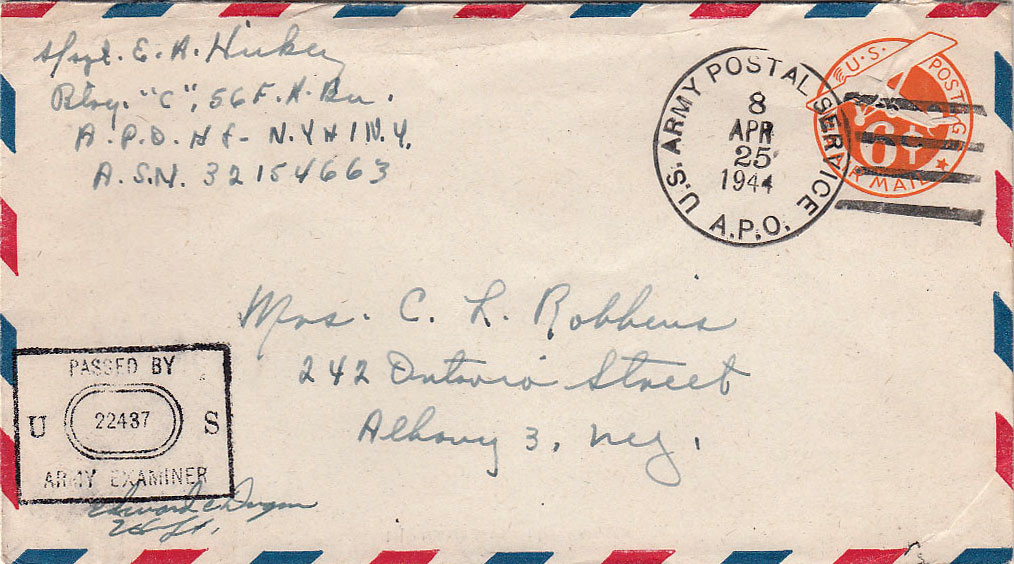 E. A.
"C", 56 F. A. Bn.
A.P.O. N.Y. N.Y.
A.S.N. 32154663
U.S. ARMY POSTAL SERVICE
8
APR
25
1944
A.P.O.
U.S. POSTAGE
6¢
AIR MAIL
Mrs. C. L. Robbins
242 Ontario Street
Albany 3, N.Y.
PASSED BY
U 22437 S
ARMY EXAMINER
Edward